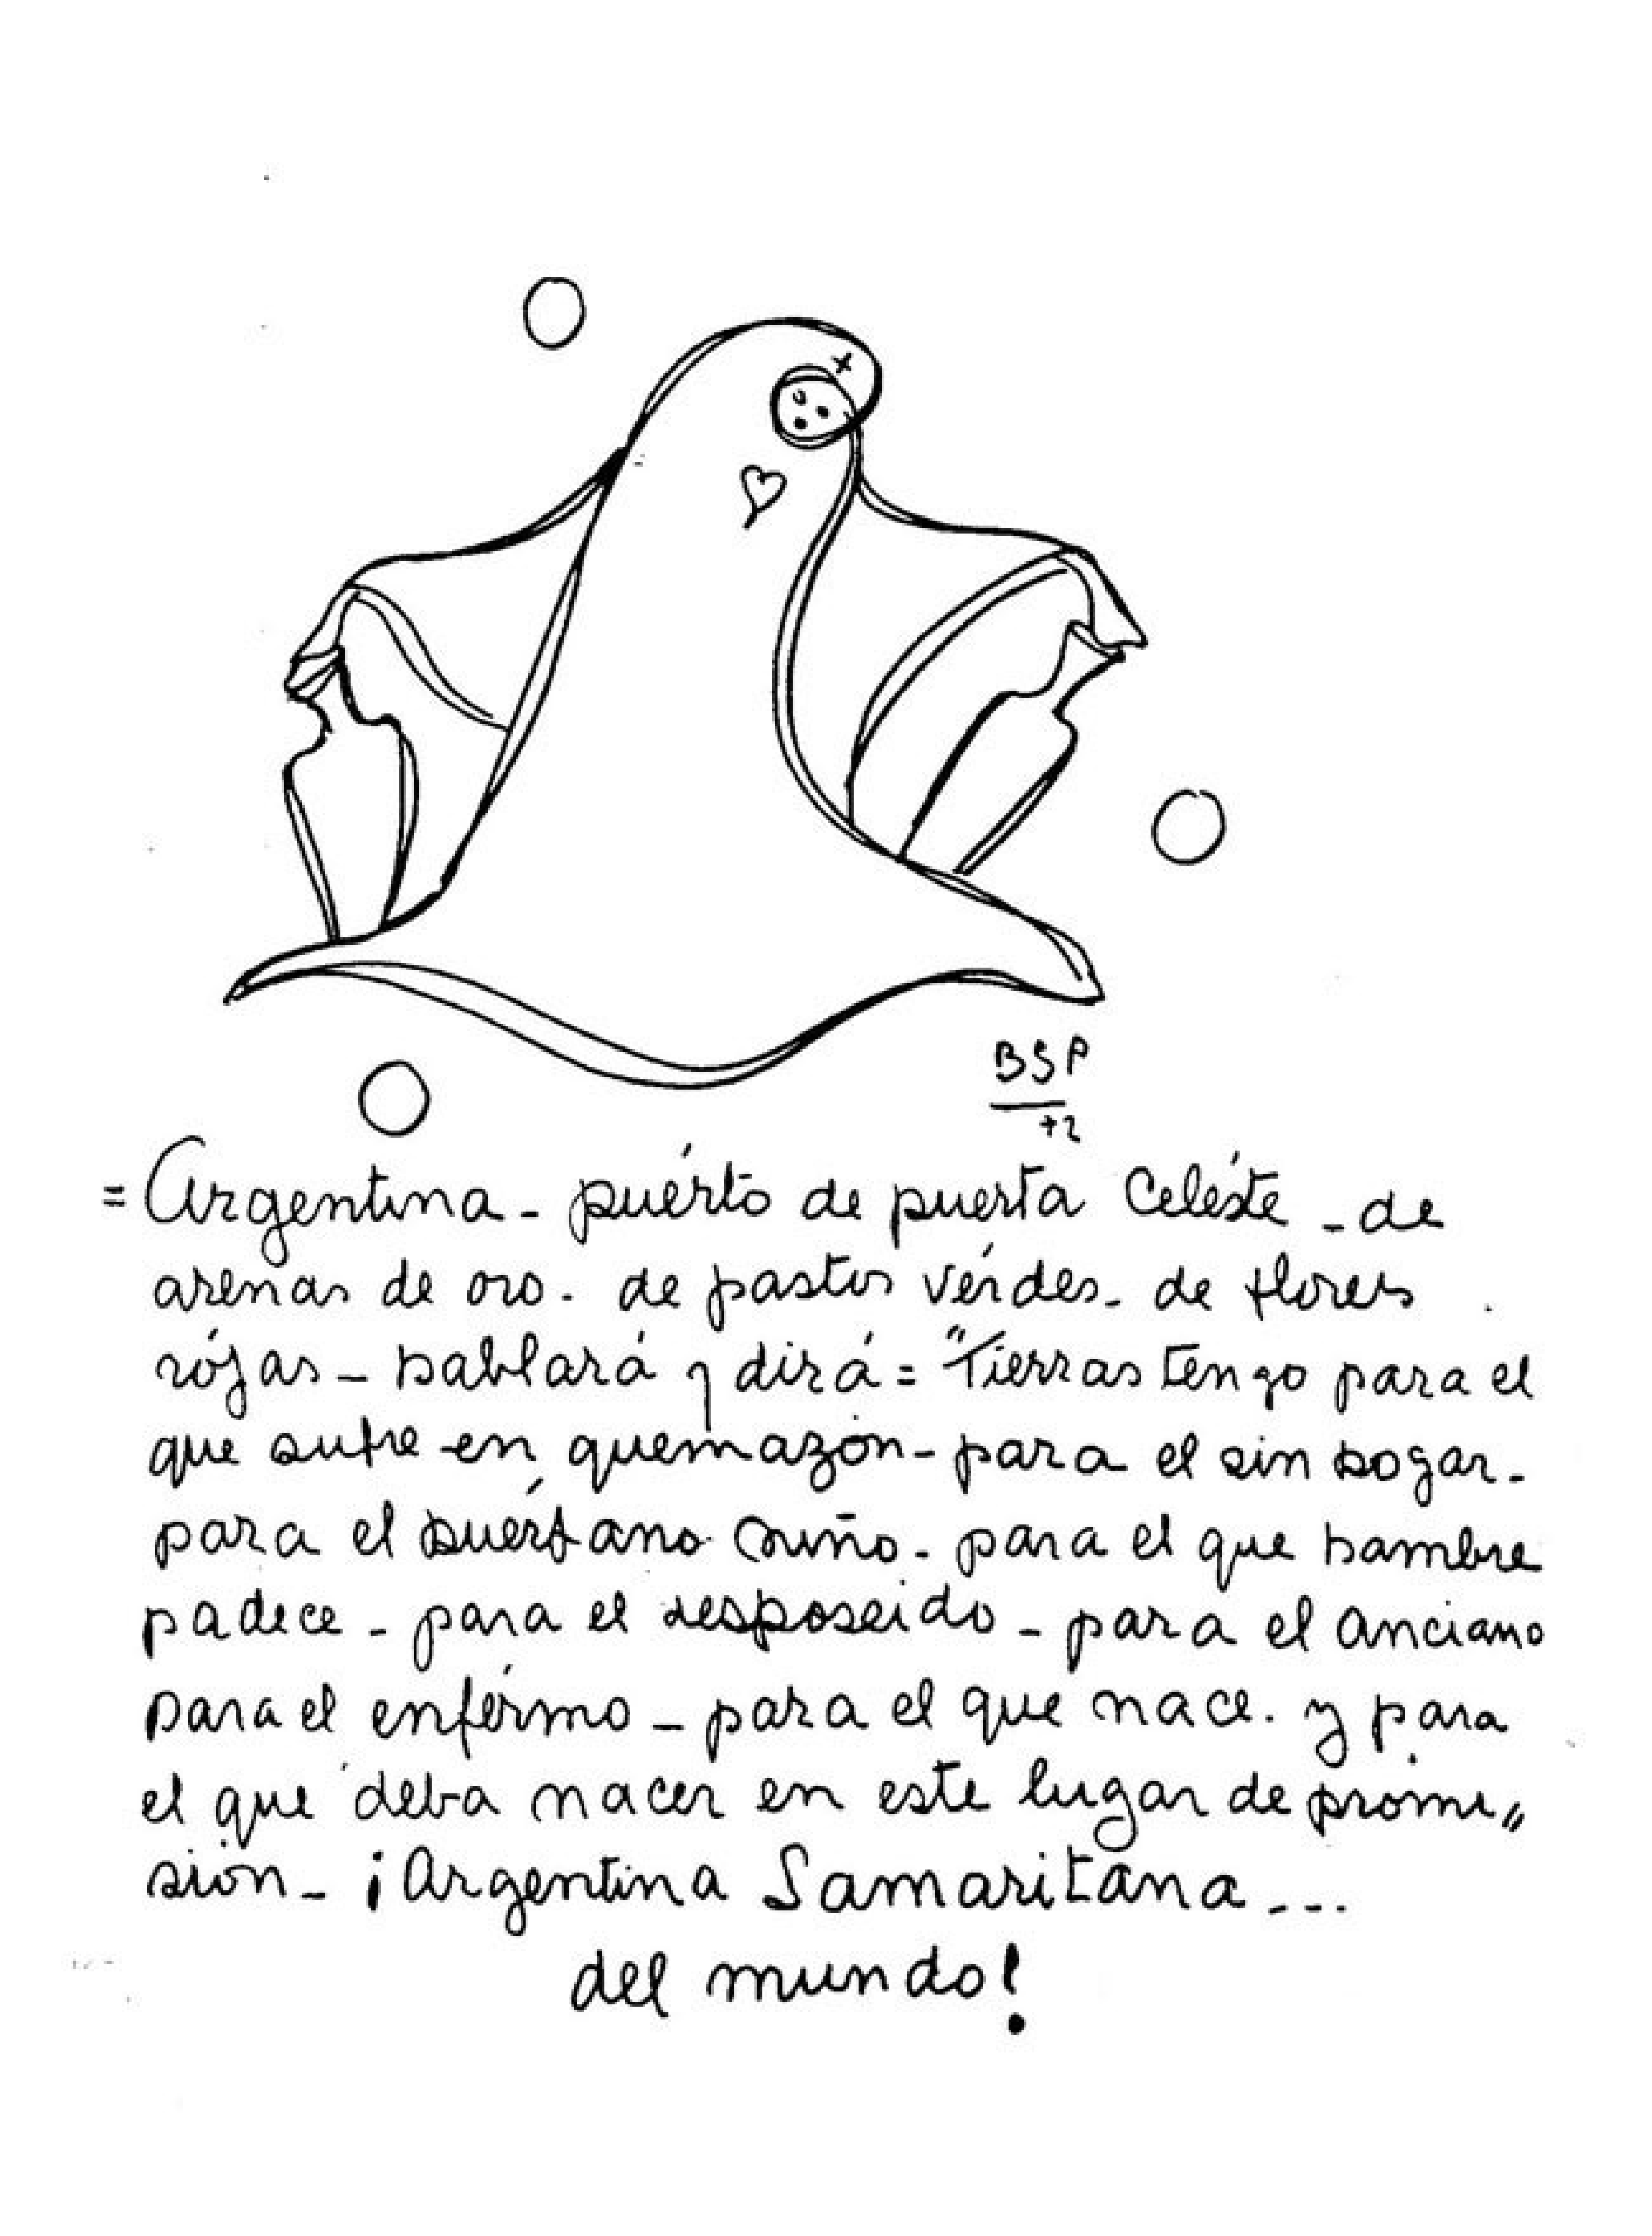 BSP
72
= Argentina - puérto de puerta Celéste - de
arenas de oro. de pastos vérdes. de flores
rójas - hablará y dirá = "Tierras tengo para el
que sufre en quemazón - para el sin hogar.
para el huérfano niño. para el que hambre
padece - para el desposeido - para el anciano
para el enférmo - para el que nace. y para
el que deba nacer en este lugar de promi,,
sión - ¡Argentina Samaritana ...
del mundo!